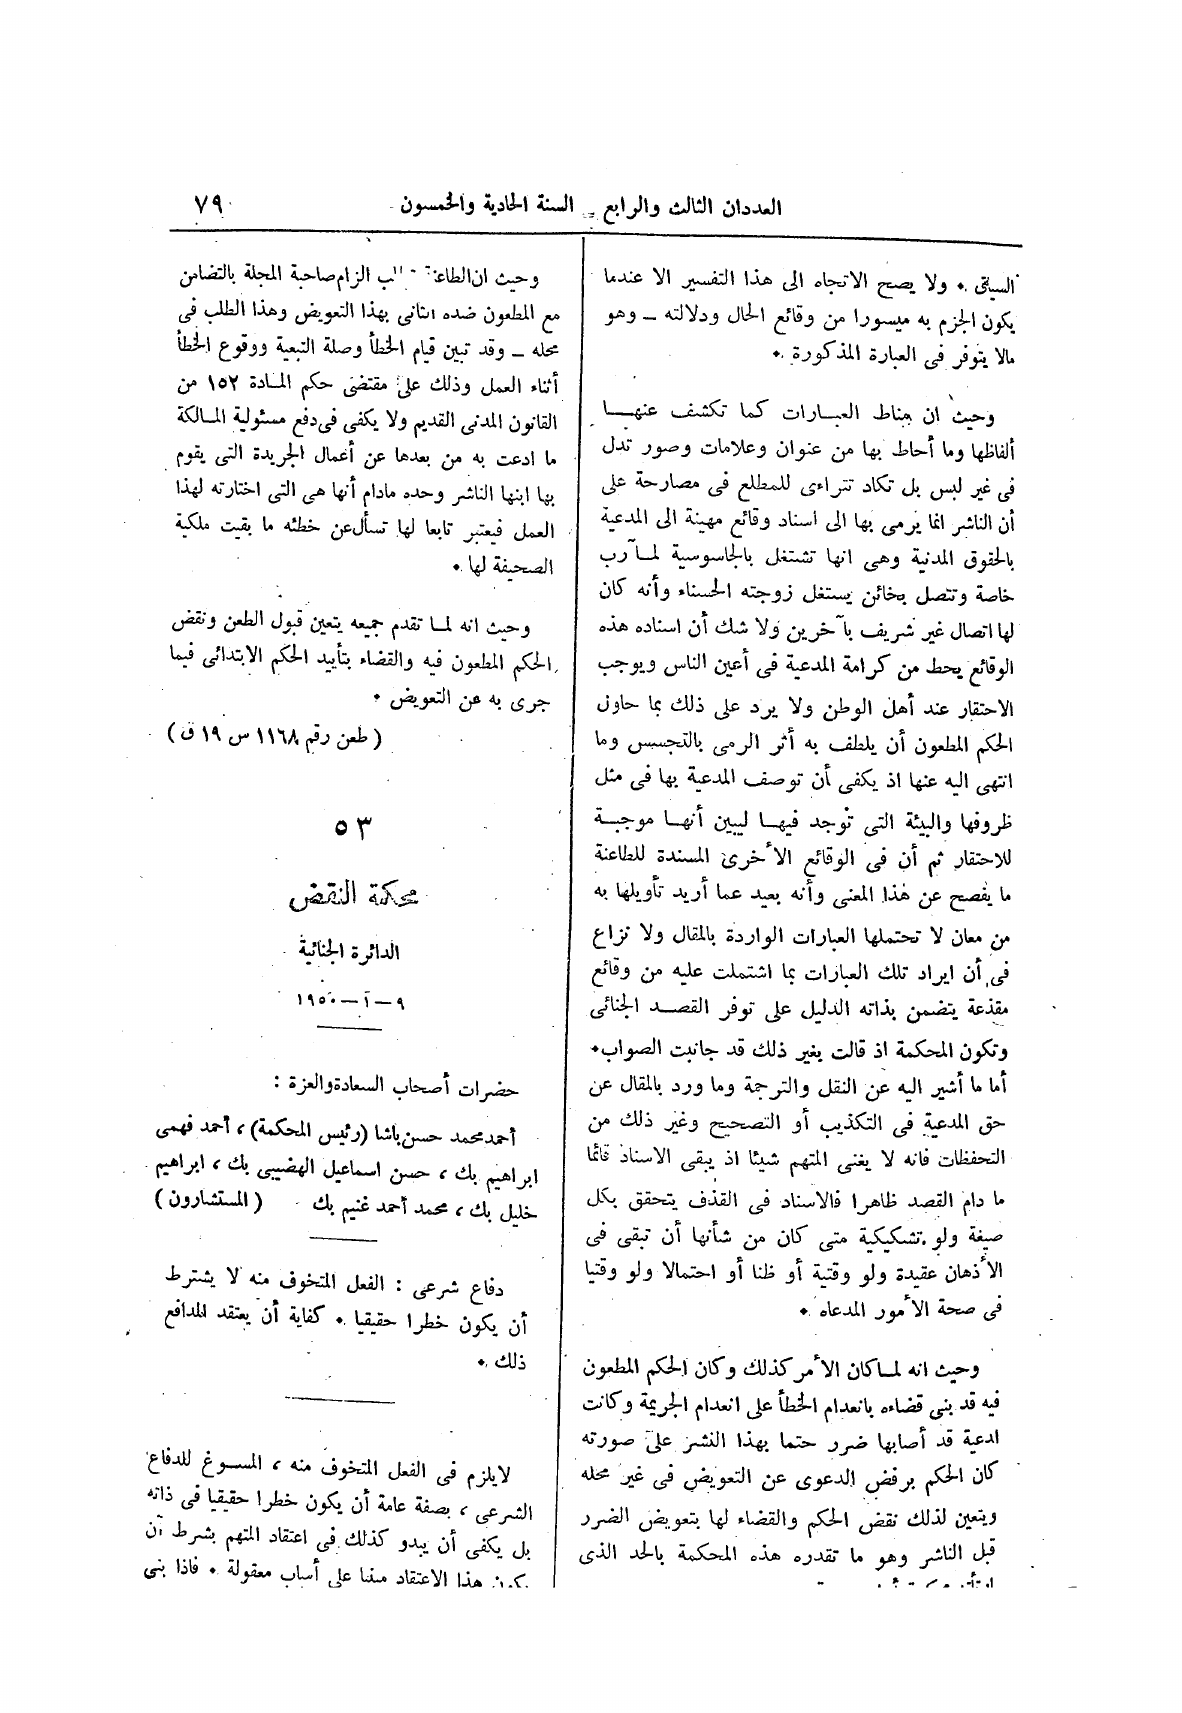 العددان الثالث والرابع ـ السنة الحادية والخمسون
٧٩
السياق . ولا يصح الاتجاه الى هذا التفسير الا عندما
يكون الجزم به ميسورا من وقائع الحال ودلالته ــ وهو
مالا يتوفر فى العبارة المذكورة .
وحيث ان مناط العبارات كما تكشف عنهــا
ألفاظها وما أحاط بها من عنوان وعلامات وصور تدل
فى غير لبس بل تكاد تتراءى للمطلع فى مصارحة على
أن الناشر انما يرمى بها الى اسناد وقائع مهينة الى المدعية
بالحقوق المدنية وهى انها تشتغل بالجاسوسية لمآرب
خاصة وتتصل بخائن يستغل زوجته الحسناء وأنه كان
لها اتصال غير شريف بآخرين ولا شك أن اسناده هذه
الوقائع يحط من كرامة المدعية فى أعين الناس ويوجب
الاحتقار عند أهل الوطن ولا يرد على ذلك بما حاول
الحكم المطعون أن يلطف به أثر الرمى بالتجسس وما
انتهى اليه عنها اذ يكفى أن توصف المدعية بها فى مثل
ظروفها والبيئة التى توجد فيهــا ليبين أنهــا موجبــة
للاحتقار ثم أن فى الوقائع الأخرى المسندة للطاعنة
ما يفصح عن هذا المعنى وأنه بعيد عما أريد تأويلها به
من معان لا تحتملها العبارات الواردة بالمقال ولا نزاع
فى أن ايراد تلك العبارات بما اشتملت عليه من وقائع
مقذعة يتضمن بذاته الدليل على توفر القصــد الجنائى
وتكون المحكمة اذ قالت بغير ذلك قد جانبت الصواب.
أما ما أشير اليه عن النقل والترجمة وما ورد بالمقال عن
حق المدعية فى التكذيب أو التصحيح وغير ذلك من
التحفظات فانه لا يغنى المتهم شيئا اذ يبقى الاسناد قائما
ما دام القصد ظاهرا فالاسناد فى القذف يتحقق بكل
صيغة ولو تشكيكية متى كان من شأنها أن تبقى فى
الأذهان عقيدة ولو وقتية أو ظنا أو احتمالا ولو وقتيا
فى صحة الأمور المدعاه .
وحيث انه لمــا كان الأمر كذلك وكان الحكم المطعون
فيه قد بنى قضاءه بانعدام الخطأ على انعدام الجريمة وكانت
ادعية قد أصابها ضرر حتما بهذا النشر على صورته
كان الحكم برفض الدعوى عن التعويض فى غير محله
ويتعين لذلك نقض الحكم والقضاء لها بتعويض الضرر
قبل الناشر وهو ما تقدره هذه المحكمة بالحد الذى
وحيث ان الطاعنة الزام صاحبة المجلة بالتضامن
مع المطعون ضده الثانى بهذا التعويض وهذا الطلب فى
محله ــ وقد تبين قيام الخطأ وصلة التبعية ووقوع الخطأ
أثناء العمل وذلك على مقتضى حكم المــادة ١٥٢ من
القانون المدنى القديم ولا يكفى فى دفع مسئولية المــالكة
ما ادعت به من بعدها عن أعمال الجريدة التى يقوم
بها ابنها الناشر وحده مادام أنها هى التى اختارته لهذا
العمل فيعتبر تابعا لها تسأل عن خطئه ما بقيت ملكية
الصحيفة لها .
وحيث انه لمــا تقدم جميعه يتعين قبول الطعن ونقض
الحكم المطعون فيه والقضاء بتأييد الحكم الابتدائى فيما
جرى به عن التعويض .
( طعن رقم ١١٦٨ س ١٩ ق )
٥٣
محكمة النقض
الدائرة الجنائية
٩ ــ ــ ١٩٥٠
حضرات أصحاب السعادة والعزة :
أحمد محمد حسن باشا (رئيس المحكمة) ، أحمد فهمى
ابراهيم بك ، حسن اسماعيل الهضيبى بك ، ابراهيم
خليل بك ، محمد أحمد غنيم بك ( المستشارون )
دفاع شرعى : الفعل المتخوف منه لا يشترط
أن يكون خطرا حقيقيا . كفاية أن يعتقد المدافع
ذلك .
لا يلزم فى الفعل المتخوف منه ، المســوغ للدفاع
الشرعى ، بصفة عامة أن يكون خطرا حقيقيا فى ذاته
بل يكفى أن يبدو كذلك فى اعتقاد المتهم بشرط أن
يكون هذا الاعتقاد مبنيا على أسباب معقولة . فاذا بنى